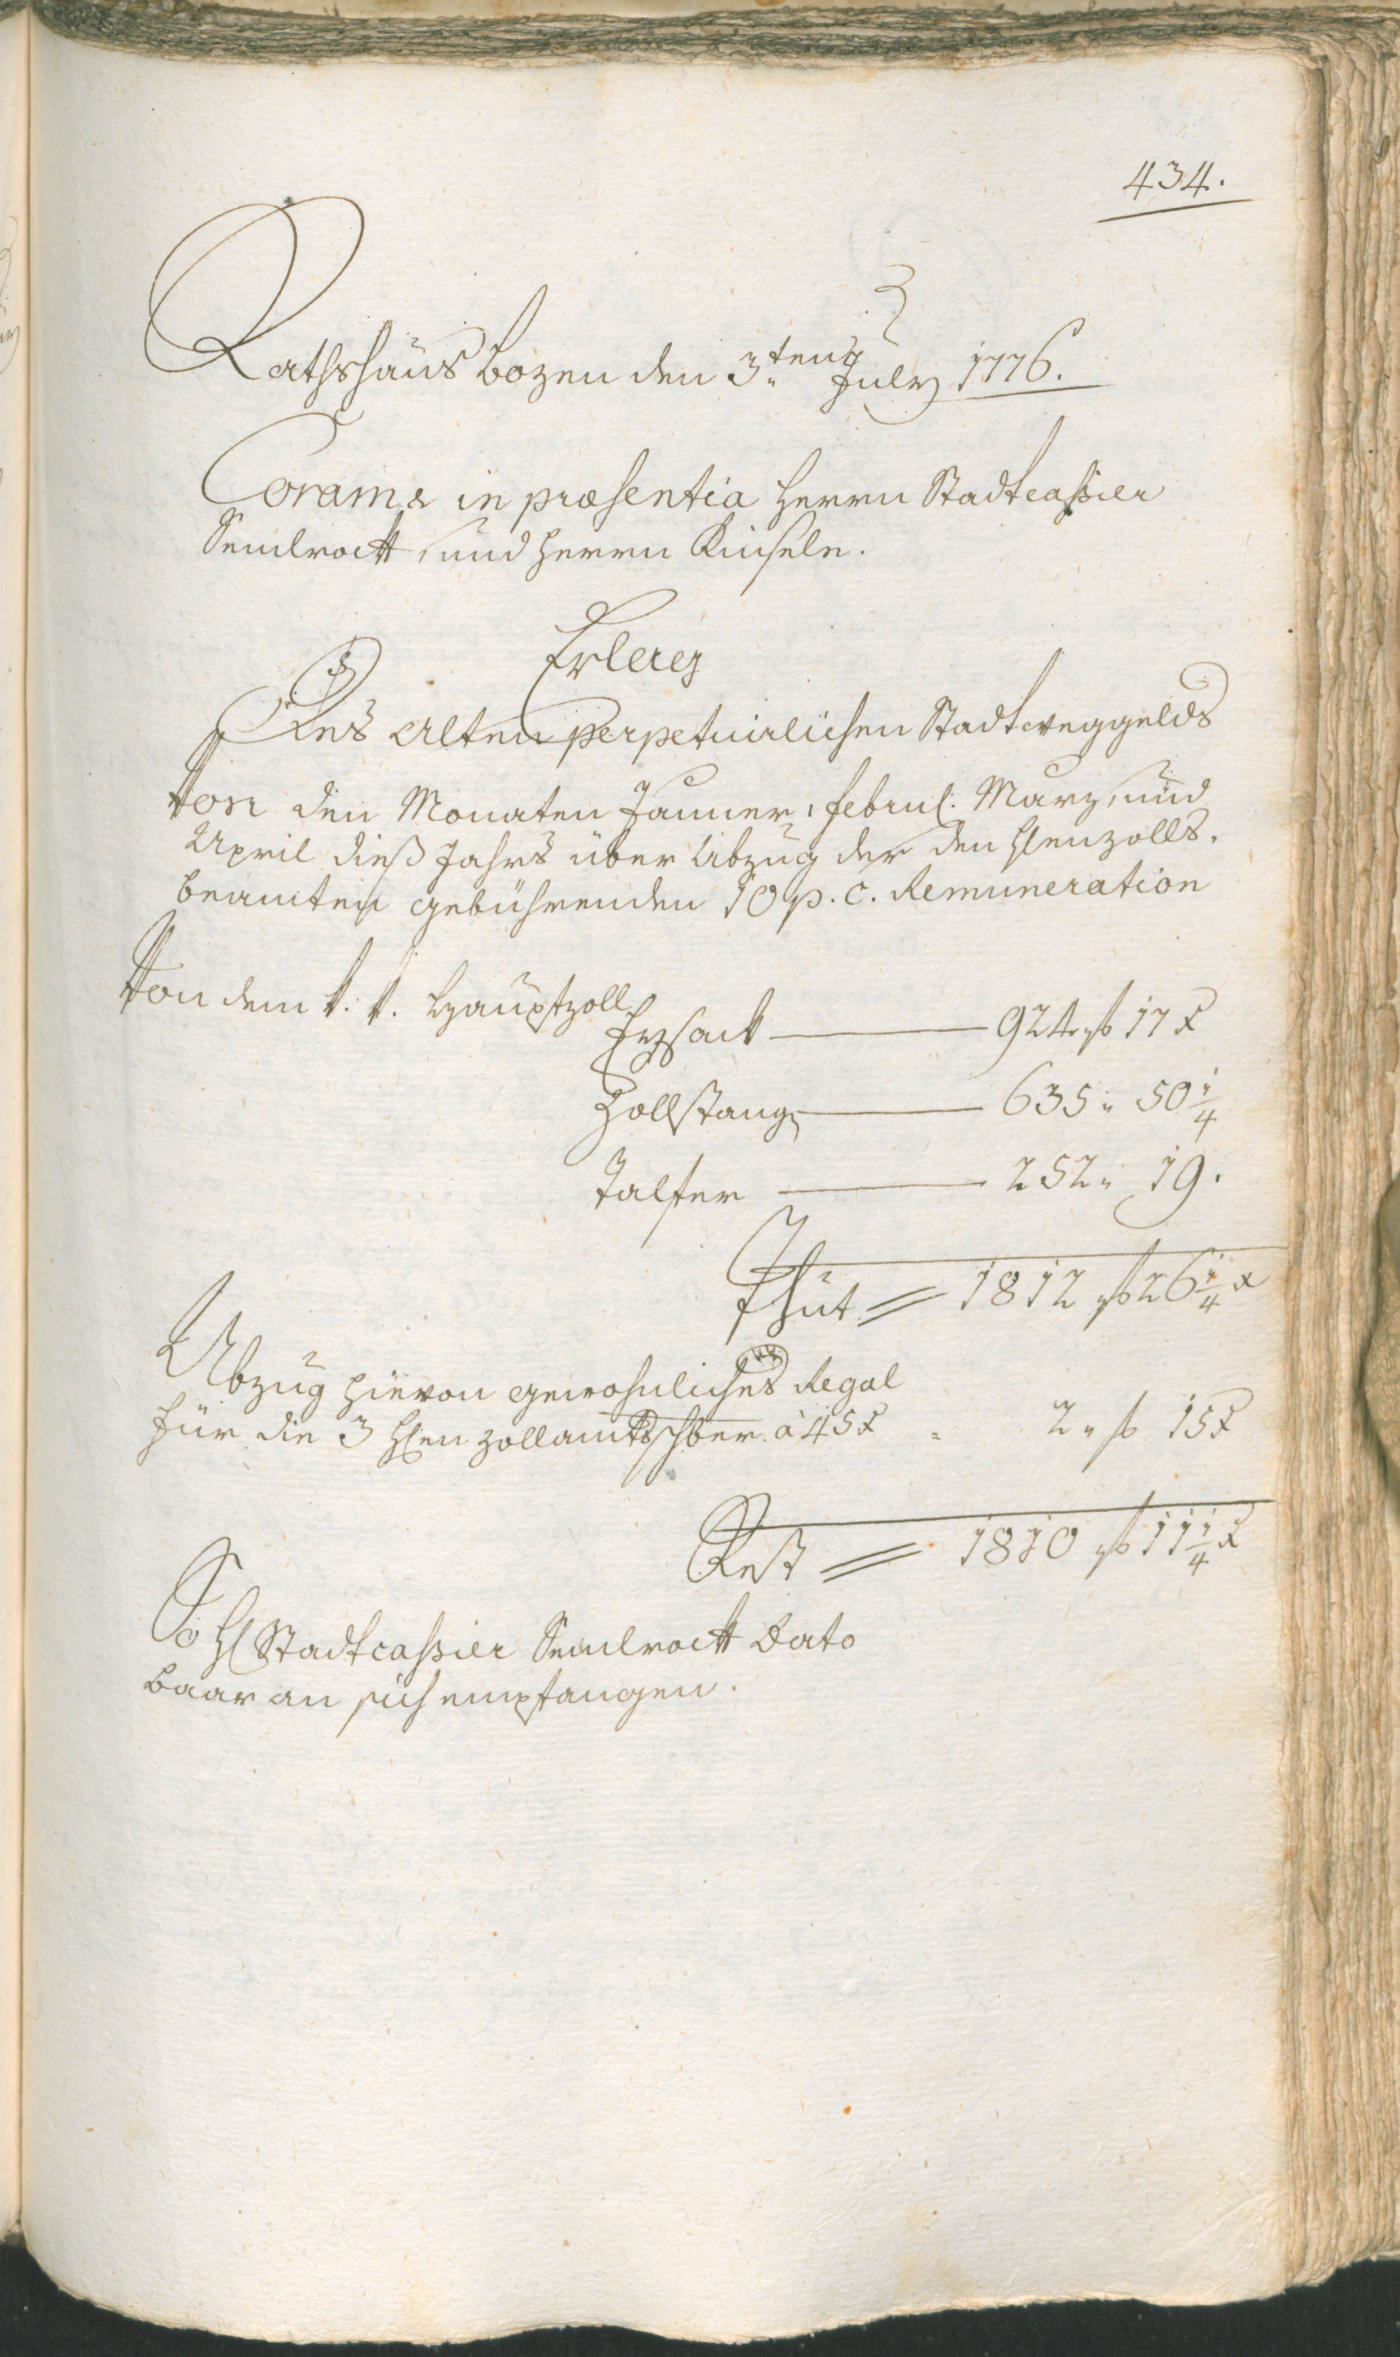 434.
Rathshaus Bozen den 3.ten July 1776.
Coram & in præsentia Herrn Stadtcassier
Semlrock, und Herrn Kinsele.
Erlag
Des alten perpetuirlichen Stadtweggelds
von den Monaten Jänner, Febru. Marz, und
April dieß Jahrs über Abzug der den HHen Zolls-
beamten gebührenden 10 p. c. Remuneration
Von dem k. k. Hauptzoll
Eysack — 924 f 17 x
Zollstang — 635 " 50 1/4
Talfer — 252 " 19.
Thut = 1812 f 26 1/4 x
Abzug hievon gewohnliches Regal
für die 3 HHen Zollamtsschber. à 45 x " 2 " f 15 x
Rest = 1810 f 11 1/4 x
So H Stadtcassier Semlrock Dato
baar an sich empfangen.